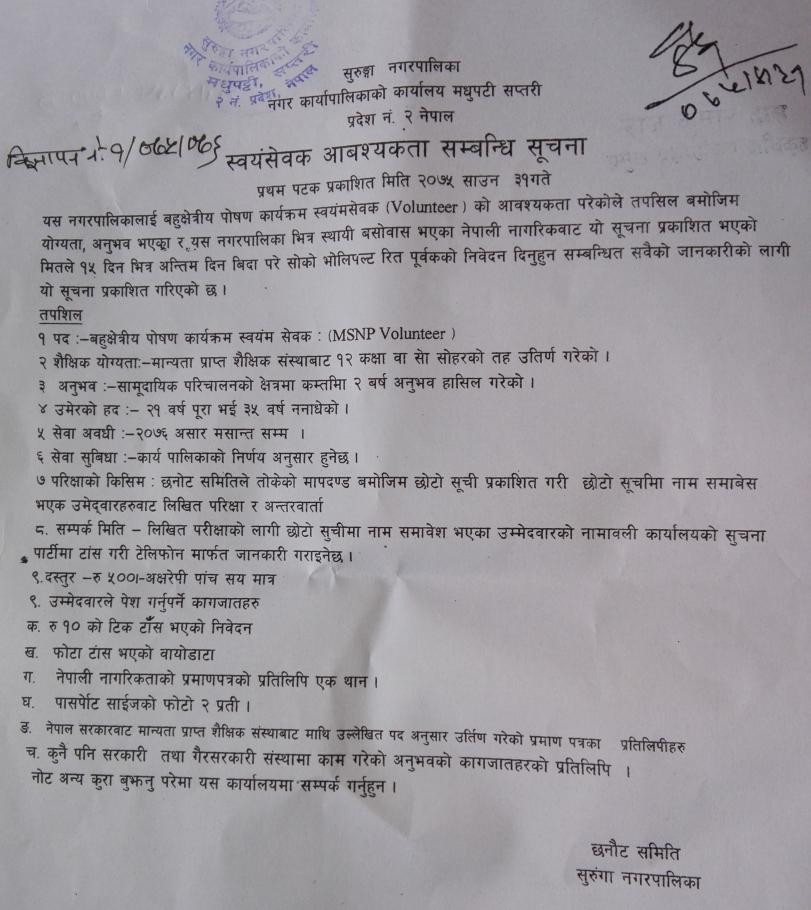 सुरुङ्गा नगरपालिका
नगर कार्यपालिकाको
मधुपट्टी, सप्तरी
२ नं. प्रदेश, नेपाल
सुरुङ्गा नगरपालिका
नगर कार्यापालिकाको कार्यालय मधुपटी सप्तरी
प्रदेश नं. २ नेपाल
विज्ञापन नं. १/०७५/०७६
स्वयंसेवक आबश्यकता सम्बन्धि सूचना
प्रथम पटक प्रकाशित मिति २०७५ साउन ३१गते
यस नगरपालिकालाई बहुक्षेत्रीय पोषण कार्यक्रम स्वयंमसेवक (Volunteer ) को आवश्यकता परेकोले तपसिल बमोजिम
योग्यता, अनुभव भएका र यस नगरपालिका भित्र स्थायी बसोवास भएका नेपाली नागरिकवाट यो सूचना प्रकाशित भएको
मितले १५ दिन भित्र अन्तिम दिन बिदा परे सोको भोलिपल्ट रित पूर्वकको निवेदन दिनुहुन सम्बन्धित सवैको जानकारीको लागी
यो सूचना प्रकाशित गरिएको छ ।
तपशिल
१ पद :–बहुक्षेत्रीय पोषण कार्यक्रम स्वयंम सेवक : (MSNP Volunteer )
२ शैक्षिक योग्यताः–मान्यता प्राप्त शैक्षिक संस्थाबाट १२ कक्षा वा सेा सोहरको तह उतिर्ण गरेको ।
३ अनुभव :–सामूदायिक परिचालनको क्षेत्रमा कम्तीमा २ बर्ष अनुभव हासिल गरेको ।
४ उमेरको हद :– २१ वर्ष पूरा भई ३५ वर्ष ननाधेको ।
५ सेवा अवधी :–२०७६ असार मसान्त सम्म ।
६ सेवा सुबिधा :–कार्य पालिकाको निर्णय अनुसार हुनेछ ।
७ परिक्षाको किसिम : छनोट समितिले तोकेको मापदण्ड बमोजिम छोटो सूची प्रकाशित गरी छोटो सूचमिा नाम समाबेस
भएक उमेद्‌वारहरुवाट लिखित परिक्षा र अन्तरवार्ता
८. सम्पर्क मिति – लिखित परीक्षाको लागी छोटो सुचीमा नाम समावेश भएका उम्मेदवारको नामावली कार्यालयको सुचना
पार्टीमा टांस गरी टेलिफोन मार्फत जानकारी गराइनेछ ।
९.दस्तुर –रु ५००।–अक्षरेपी पांच सय मात्र
९. उम्मेदवारले पेश गर्नुपर्ने कागजातहरु
क. रु १० को टिक टाँस भएको निवेदन
ख. फोटा टांस भएको वायोडाटा
ग. नेपाली नागरिकताको प्रमाणपत्रको प्रतिलिपि एक थान ।
घ. पासर्पाेट साईजको फोटो २ प्रती ।
ङ. नेपाल सरकारवाट मान्यता प्राप्त शैक्षिक संस्थाबाट माथि उल्लेखित पद अनुसार उर्तिण गरेको प्रमाण पत्रका प्रतिलिपीहरु
च. कुनै पनि सरकारी तथा गैरसरकारी संस्थामा काम गरेको अनुभवको कागजातहरको प्रतिलिपि ।
नोट अन्य कुरा बुझनु परेमा यस कार्यालयमा सम्पर्क गर्नुहुन ।
छनौट समिति
सुरुंगा नगरपालिका